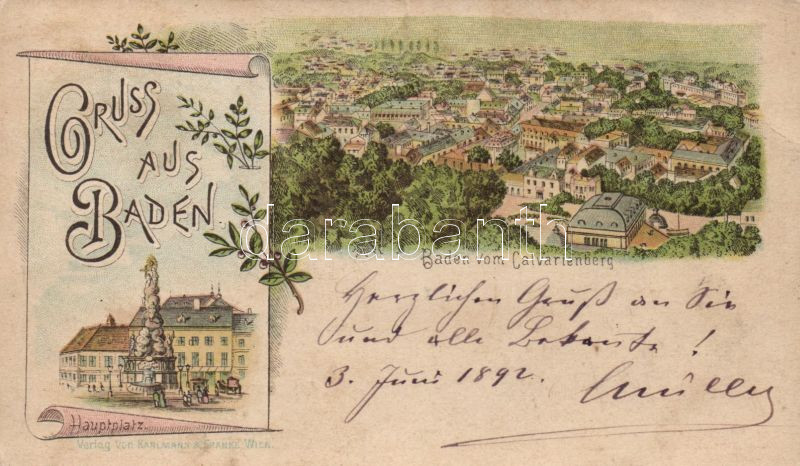 GRUSS
AUS
BADEN
darabanth
Baden vom Calvarienberg
Herzlichen Gruß an Sie
und alle Bekannte!
3. Juni 1892.
Müller
Hauptplatz.
Verlag von KARLMANN & FRANKE, WIEN.